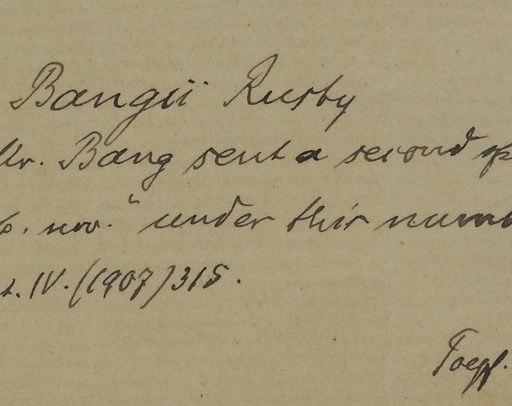 Bangii Rusby
Mr. Bang sent a second sp
sp. nov." under this numb
t. IV. (1907) 315.
Toepf.